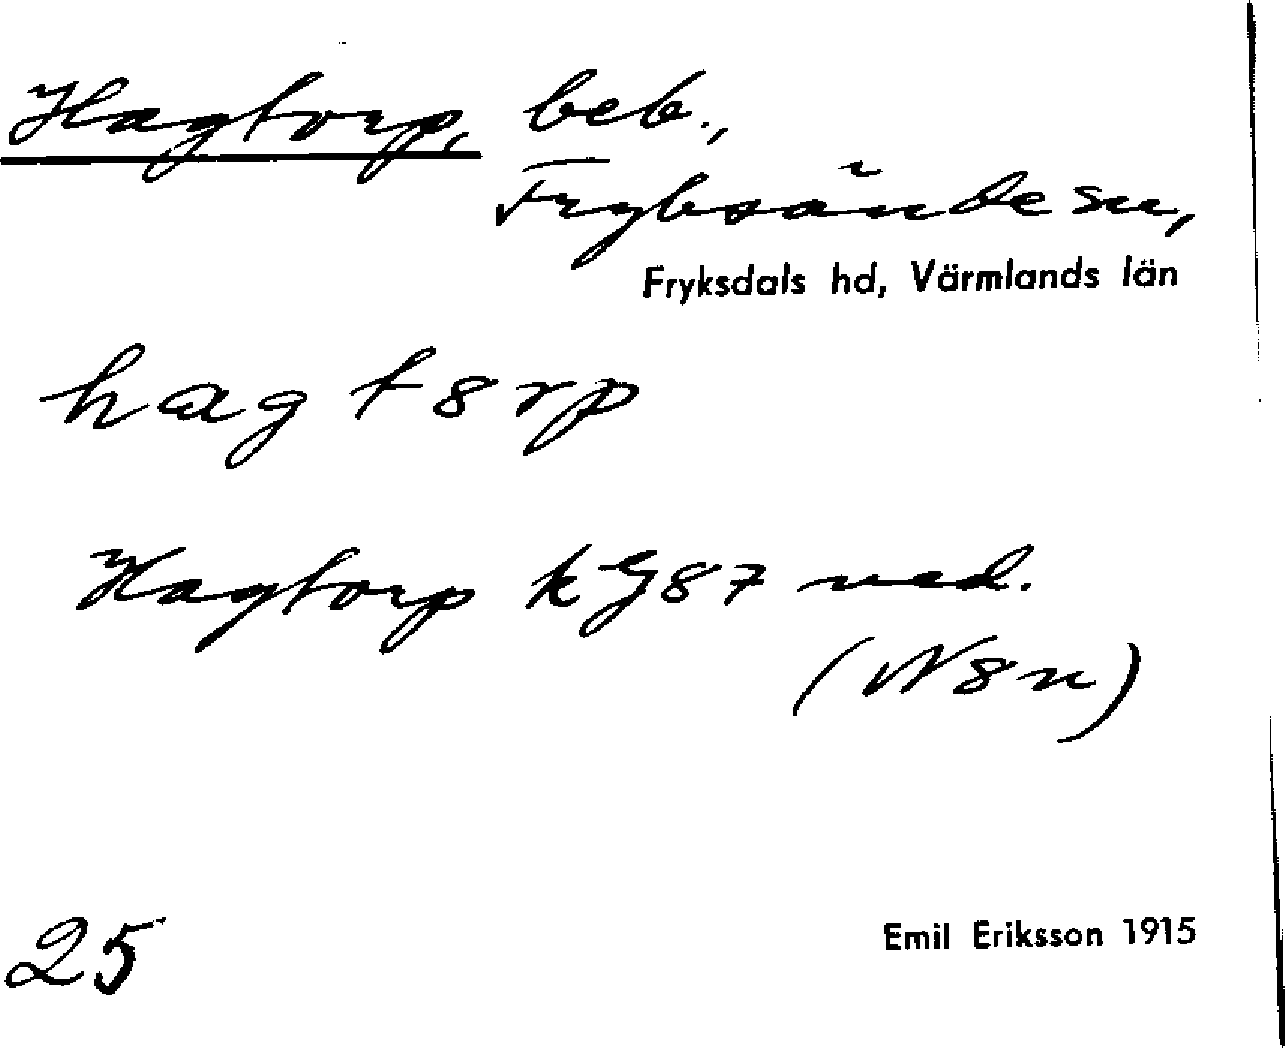 Hagtorp, beb.,
Fryksände sn,
Fryksdals hd, Värmlands län
hagt8rp
Hagtorp kG87 ned.
(N8n)
25
Emil Eriksson 1915